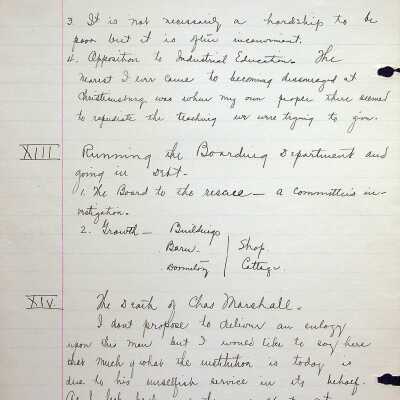 3. It is not necessarily a hardship to be
poor but it is often inconvenient.
4. Opposition to Industrial Education. The
nearest I ever came to becoming discouraged at
Christiansburg was when my own people there seemed
to repudiate the teaching we were trying to give.
XIII Running the Boarding Department and
going in Debt.
1. The Board to the rescue — a committee's in-
vestigation.
2. Growth — Buildings
Barn. | Shop.
Dormitory | Cottage.
XIV The Death of Chas Marshall.
I dont propose to deliver an eulogy
upon this man but I would like to say here
that much of what the institution is today is
due to his unselfish service in its behalf.
As I look back